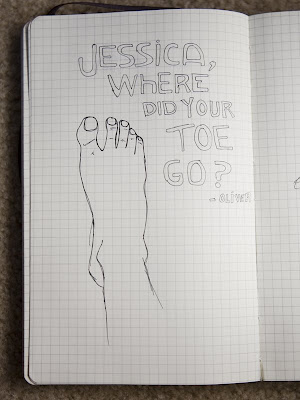 JESSICA,
WHERE
DID YOUR
TOE
GO?